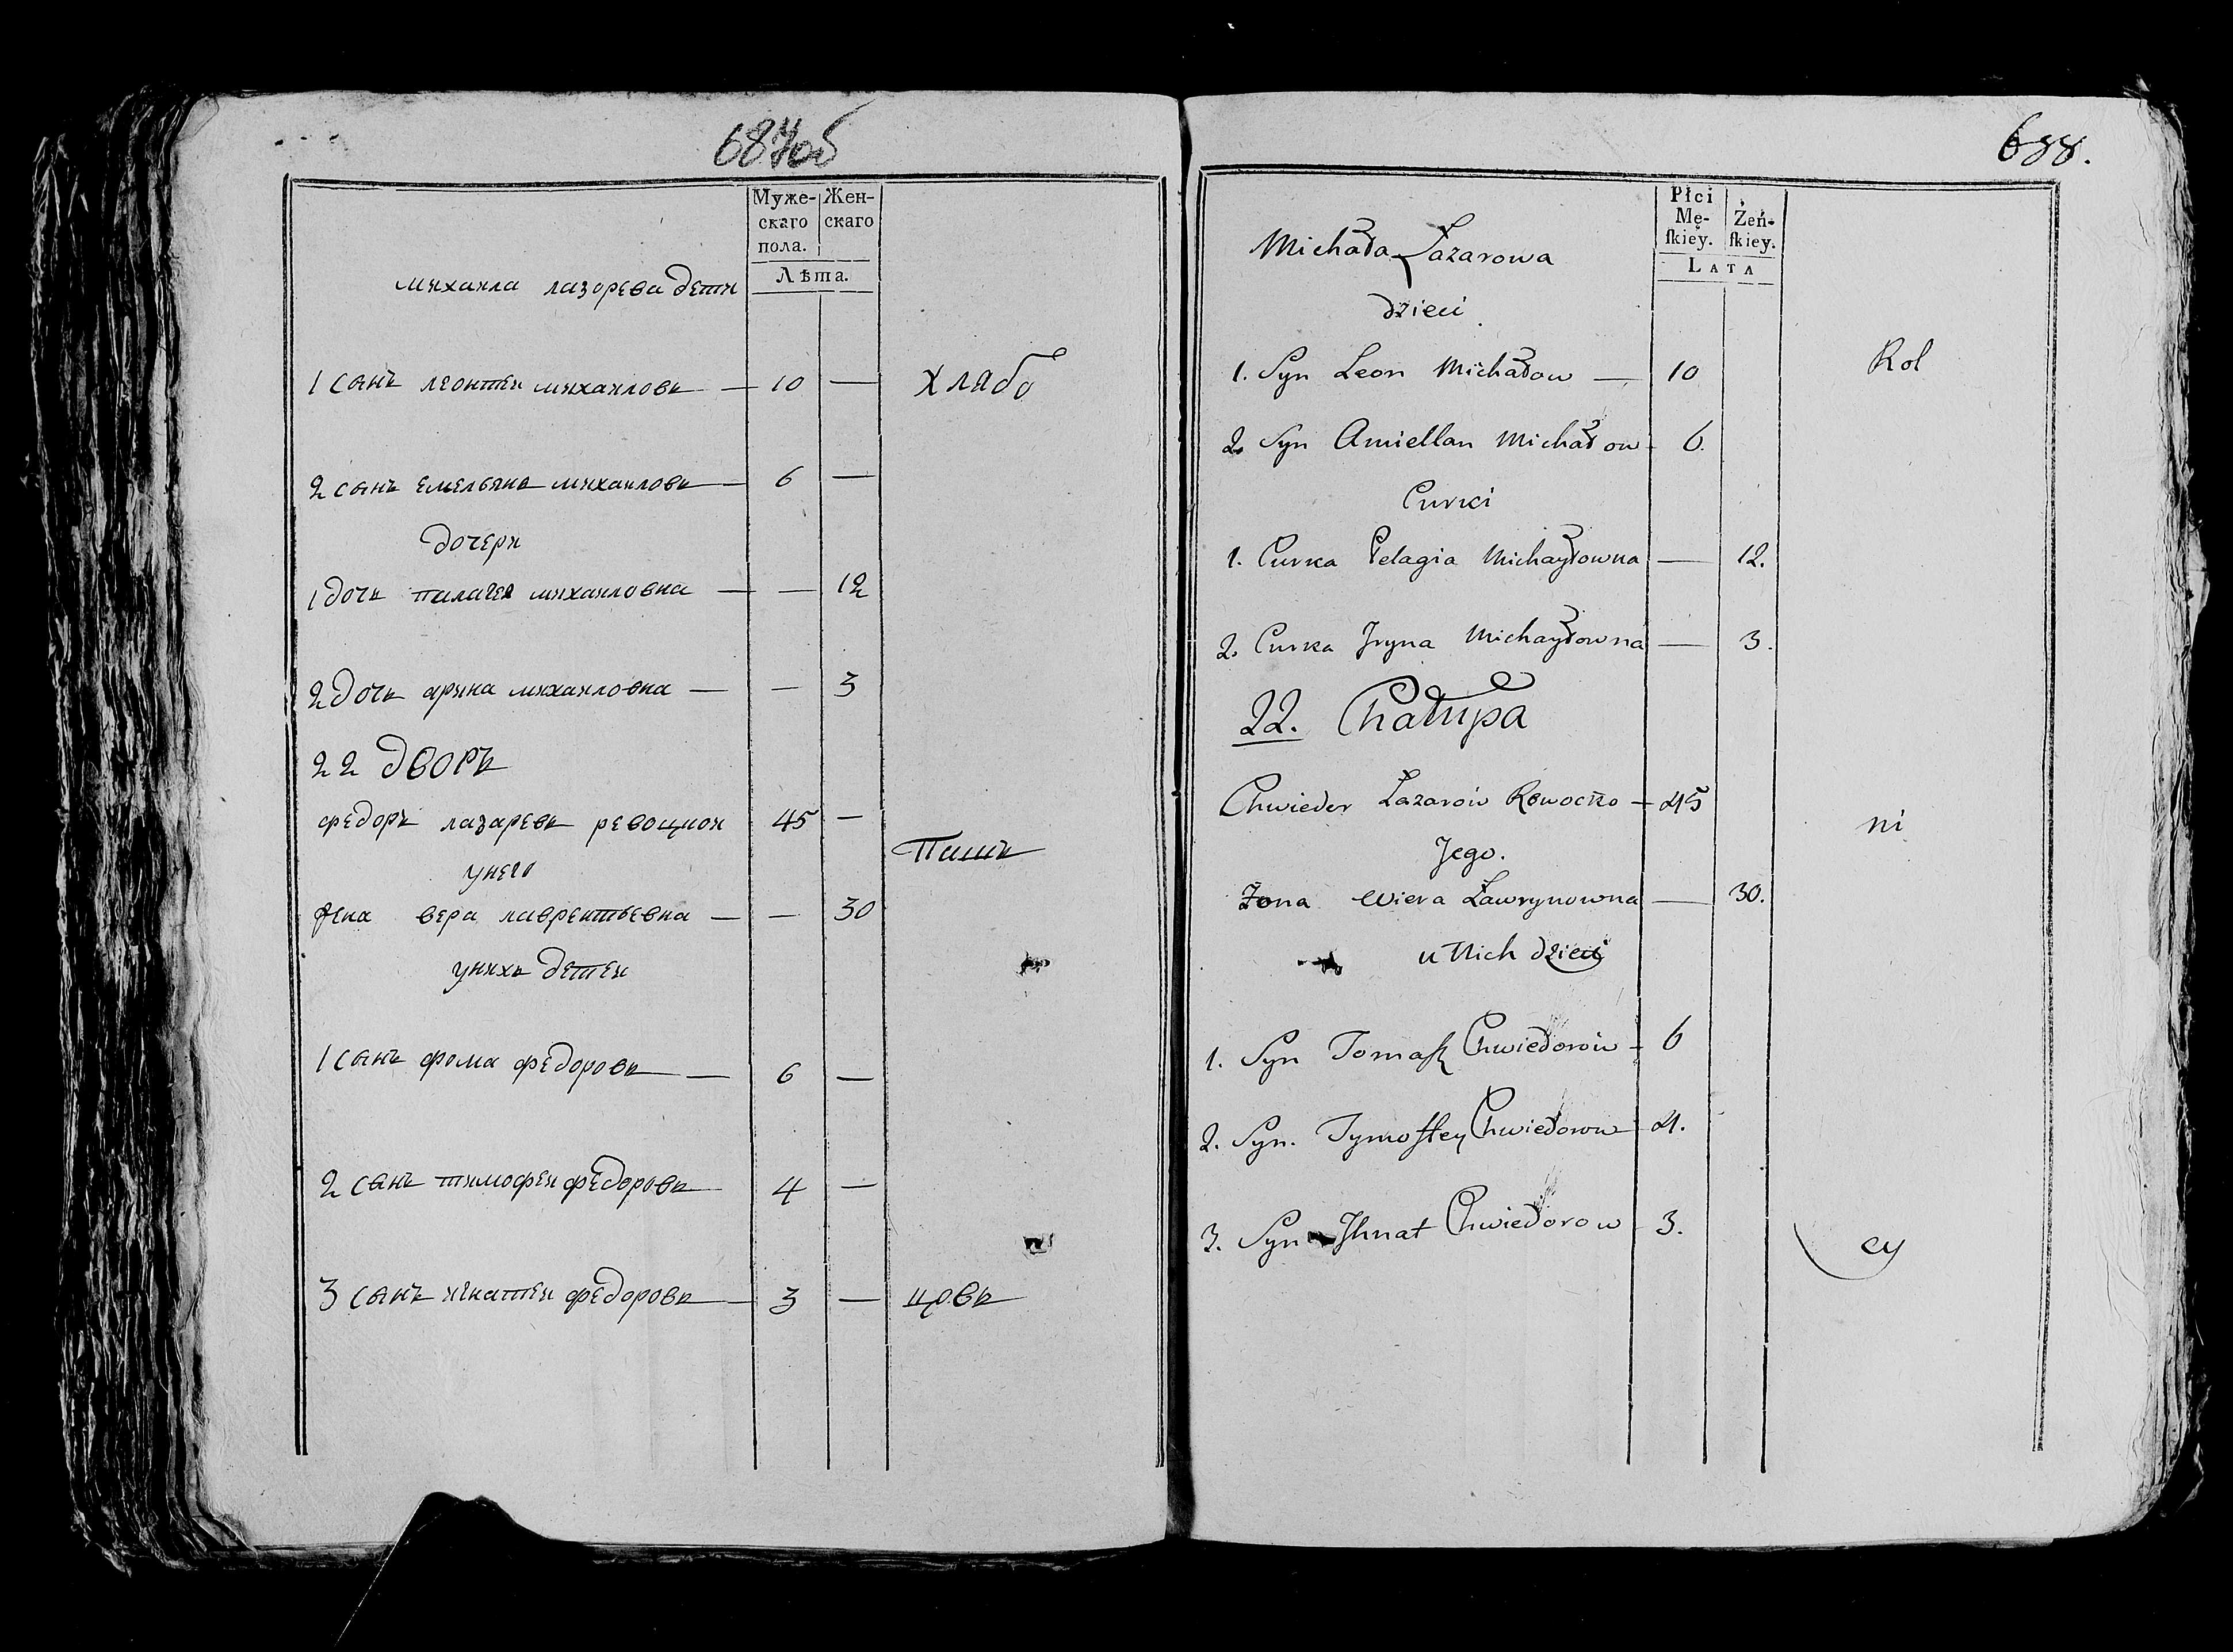 687об
Муже-
скаго
пола.
Жен-
скаго
Лѣта.
михаила лазорева дети
1 сынъ леонтеи михаиловъ — 10 —
хлябо
2 сынъ емельянъ михаиловъ — 6 —
дочери
1 дочь палагея михаиловна — — 12
2 дочь арина михаиловна — — 3
22 дворъ
федоръ лазаревъ ревоцкои 45 —
Пашъ
унего
жена вера лаврентьевна — — 30
унихъ детеи
1 сынъ фома федоровъ — 6 —
2 сынъ тимофеи федоровъ 4 —
3 сынъ игнатеи федоровъ — 3 —
цовъ
688.
Płci
Mę-
ſkiey.
Żeń-
ſkiey.
LATA
Michała Łazarowa
dzieci
1. Syn Leon Michałow — 10
Rol
2. Syn Amiellan Michałow 6.
Curki
1. Curka Pelagia Michayłowna — 12.
2. Curka Jryna Michayłowna — 3.
22. Chałupa
Chwieder Łazarow Rewocko — 45
ni
Jego.
Żona Wiera Ławrynowna — 30.
u Nich dzieci
1. Syn Tomaſz Chwiedorow — 6
2. Syn. Tymoſzey Chwiedorow 4.
3. Syn Jhnat Chwiedorow 3.
cy